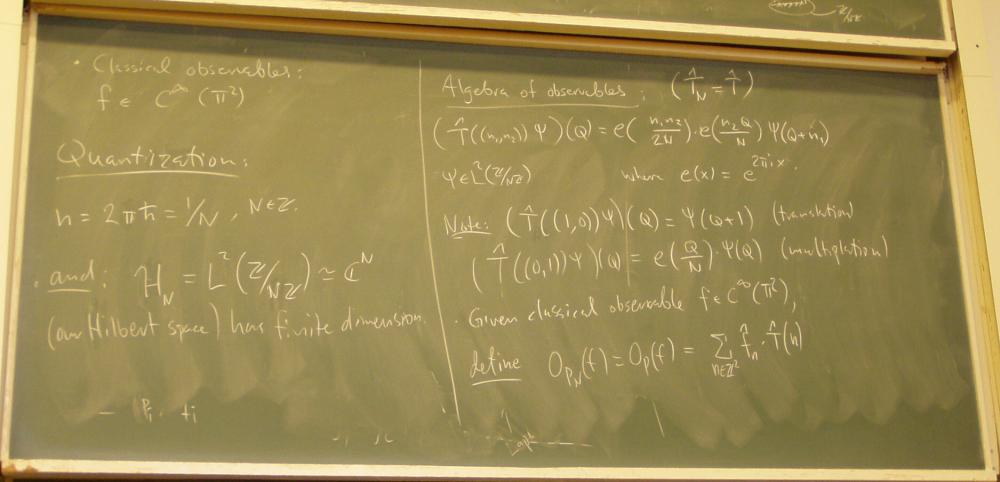 Z/NZ
• Classical observables:
f ∈ C^∞ (𝕋²)
Quantization:
h = 2πħ = 1/N , N∈Z.
• and: H_N = L²(Z/NZ) ≃ ℂ^N
(our Hilbert space) has finite dimension.
Algebra of observables: (T̂_N = T̂)
(T̂((n₁,n₂))Ψ)(Q) = e(n₁n₂/2N)·e(n₂Q/N)Ψ(Q+n₁)
Ψ∈L²(Z/NZ) where e(x) = e^{2πix}.
Note: (T̂((1,0))Ψ)(Q) = Ψ(Q+1) (translation)
(T̂((0,1))Ψ)(Q) = e(Q/N)·Ψ(Q) (multiplation)
• Given classical observable f∈C^∞(𝕋²),
define Op_N(f) = Op(f) = Σ_{n∈Z²} f̂_n·T̂(n)